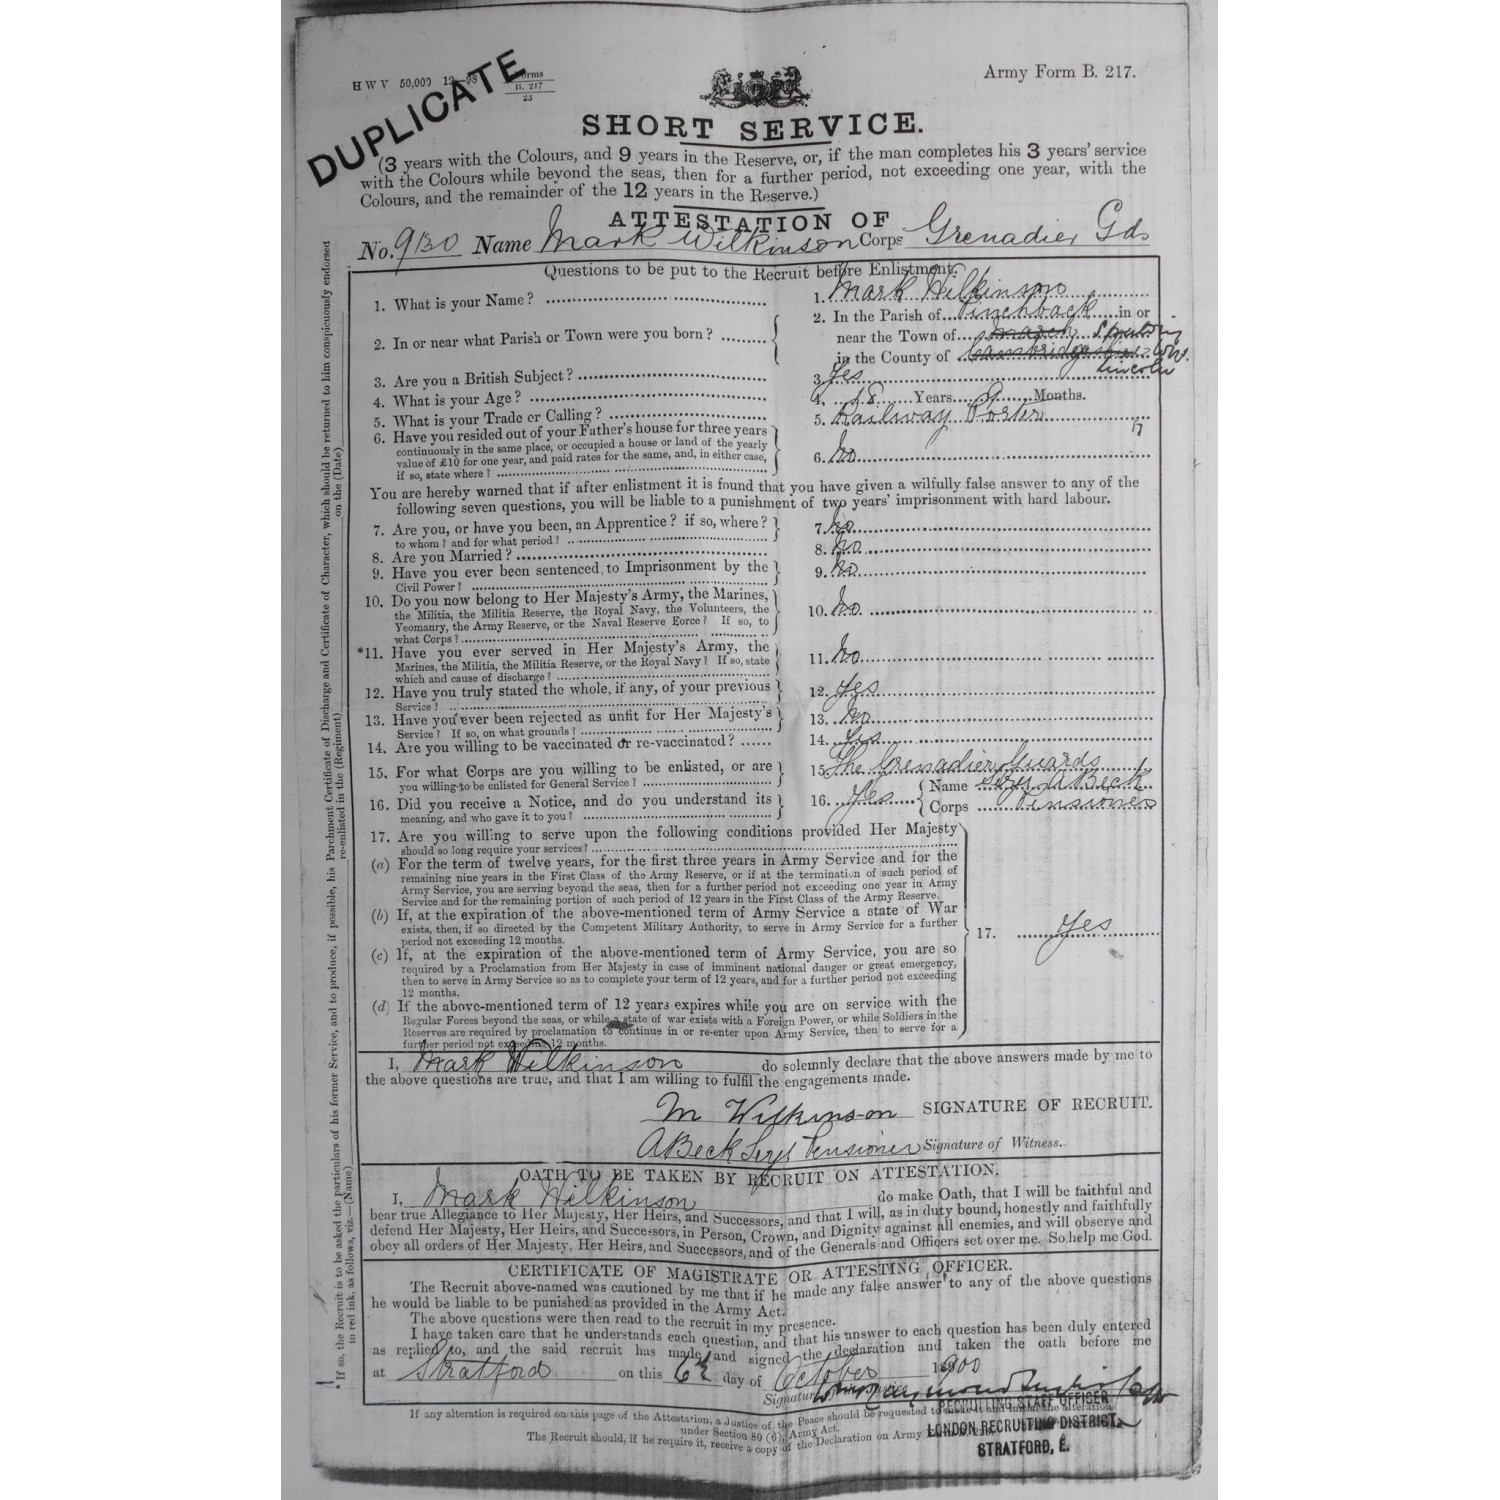 H W V 50,000 12—98 Forms B. 217 23
Army Form B. 217.
DUPLICATE
SHORT SERVICE.
(3 years with the Colours, and 9 years in the Reserve, or, if the man completes his 3 years' service
with the Colours while beyond the seas, then for a further period, not exceeding one year, with the
Colours, and the remainder of the 12 years in the Reserve.)
ATTESTATION OF
No. 9130 Name Mark Wilkinson Corps Grenadier Gds
Questions to be put to the Recruit before Enlistment.
1. What is your Name? 1. Mark Wilkinson
2. In or near what Parish or Town were you born? 2. In the Parish of Pinchback in or
near the Town of March Spalding
in the County of Cambridgeshire
Lincoln
3. Are you a British Subject? 3. Yes
4. What is your Age? 4. 18 Years 9 Months.
5. What is your Trade or Calling? 5. Railway Porter
6. Have you resided out of your Father's house for three years
continuously in the same place, or occupied a house or land of the yearly
value of £10 for one year, and paid rates for the same, and, in either case,
if so, state where? 6. No
You are hereby warned that if after enlistment it is found that you have given a wilfully false answer to any of the
following seven questions, you will be liable to a punishment of two years' imprisonment with hard labour.
7. Are you, or have you been, an Apprentice? if so, where? 7. No
to whom? and for what period?
8. Are you Married? 8. No
9. Have you ever been sentenced to Imprisonment by the 9. No
Civil Power?
10. Do you now belong to Her Majesty's Army, the Marines, 10. No
the Militia, the Militia Reserve, the Royal Navy, the Volunteers, the
Yeomanry, the Army Reserve, or the Naval Reserve Force? If so, to
what Corps?
*11. Have you ever served in Her Majesty's Army, the 11. No
Marines, the Militia, the Militia Reserve, or the Royal Navy? If so, state
which and cause of discharge?
12. Have you truly stated the whole, if any, of your previous 12. Yes
Service?
13. Have you ever been rejected as unfit for Her Majesty's 13. No
Service? If so, on what grounds?
14. Are you willing to be vaccinated or re-vaccinated? 14. Yes
15. For what Corps are you willing to be enlisted, or are 15. The Grenadier Guards
you willing to be enlisted for General Service?
16. Did you receive a Notice, and do you understand its 16. Yes Name Sergt A Beck
meaning, and who gave it to you? Corps Pensioner
17. Are you willing to serve upon the following conditions provided Her Majesty
should so long require your services?
(a) For the term of twelve years, for the first three years in Army Service and for the
remaining nine years in the First Class of the Army Reserve, or if at the termination of such period of
Army Service, you are serving beyond the seas, then for a further period not exceeding one year in Army
Service and for the remaining portion of such period of 12 years in the First Class of the Army Reserve.
(b) If, at the expiration of the above-mentioned term of Army Service a state of War
exists, then, if so directed by the Competent Military Authority, to serve in Army Service for a further
period not exceeding 12 months.
17. Yes
(c) If, at the expiration of the above-mentioned term of Army Service, you are so
required by a Proclamation from Her Majesty in case of imminent national danger or great emergency,
then to serve in Army Service so as to complete your term of 12 years, and for a further period not exceeding
12 months.
(d) If the above-mentioned term of 12 years expires while you are on service with the
Regular Forces beyond the seas, or while a state of war exists with a Foreign Power, or while Soldiers in the
Reserves are required by proclamation to continue in or re-enter upon Army Service, then to serve for a
further period not exceeding 12 months.
I, Mark Wilkinson do solemnly declare that the above answers made by me to
the above questions are true, and that I am willing to fulfil the engagements made.
M Wilkinson SIGNATURE OF RECRUIT.
A Beck Sergt Pensioner Signature of Witness.
OATH TO BE TAKEN BY RECRUIT ON ATTESTATION.
I, Mark Wilkinson do make Oath, that I will be faithful and
bear true Allegiance to Her Majesty, Her Heirs, and Successors, and that I will, as in duty bound, honestly and faithfully
defend Her Majesty, Her Heirs, and Successors, in Person, Crown, and Dignity against all enemies, and will observe and
obey all orders of Her Majesty, Her Heirs, and Successors, and of the Generals and Officers set over me. So help me God.
CERTIFICATE OF MAGISTRATE OR ATTESTING OFFICER.
The Recruit above-named was cautioned by me that if he made any false answer to any of the above questions
he would be liable to be punished as provided in the Army Act.
The above questions were then read to the recruit in my presence.
I have taken care that he understands each question, and that his answer to each question has been duly entered
as replied to, and the said recruit has made and signed the declaration and taken the oath before me
at Stratford on this 6th day of October 1900
Signature
RECRUITING STAFF OFFICER
LONDON RECRUITING DISTRICT.
STRATFORD, E.
If any alteration is required on this page of the Attestation, a Justice of the Peace should be requested to make it and initial the alteration
under Section 80 (6), Army Act.
The Recruit should, if he require it, receive a copy of the Declaration on Army
* If so, the Recruit is to be asked the particulars of his former Service, and to produce, if possible, his Parchment Certificate of Discharge and Certificate of Character, which should be returned to him conspicuously endorsed
in red ink, as follows, viz.—(Name) re-enlisted in the (Regiment) on the (Date)